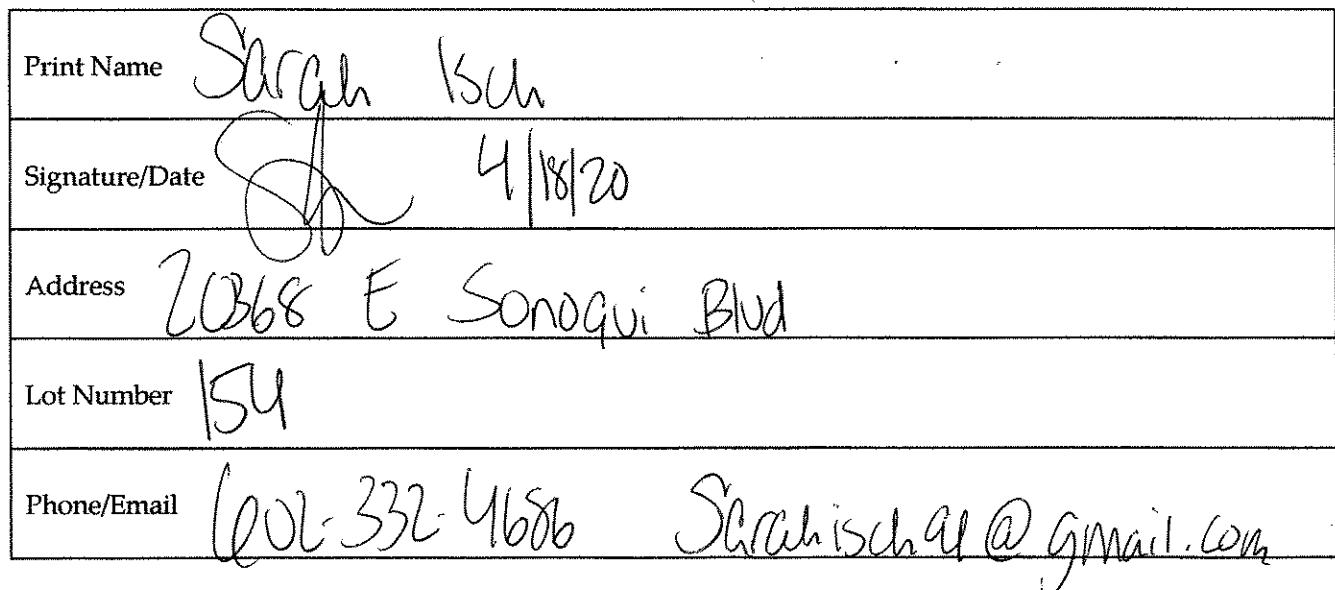 Print Name Sarah Isch
Signature/Date 4/18/20
Address 20368 E Sonoqui Blvd
Lot Number 154
Phone/Email 602-332-4686